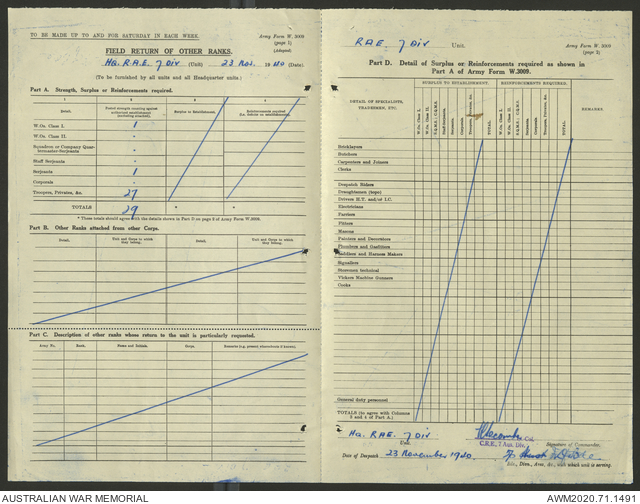 TO BE MADE UP TO AND FOR SATURDAY IN EACH WEEK.
Army Form W. 3009
(page 1)
(Adapted)
FIELD RETURN OF OTHER RANKS.
HQ. R.A.E. 7 DIV (Unit) 23 Nov. 1940 (Date)
(To be furnished by all units and all Headquarter units.)
Part A. Strength, Surplus or Reinforcements required.
1 2 3 4
Detail. Posted strength counting against authorized establishment (including attached). Surplus to Establishment. Reinforcements required (i.e. deficit on establishment).
W.Os. Class I. 1
W.Os. Class II. -
Squadron or Company Quarter-master-Serjeants -
Staff Serjeants -
Serjeants 1
Corporals -
Troopers, Privates, &c. 27
TOTALS 29 * *
* These totals should agree with the details shown in Part D on page 2 of Army Form W.3009.
Part B. Other Ranks attached from other Corps.
Detail. Unit and Corps to which they belong. Detail. Unit and Corps to which they belong.
Part C. Description of other ranks whose return to the unit is particularly requested.
Army No. Rank. Name and Initials. Corps. Remarks (e.g., present whereabouts if known).
R.A.E. 7 DIV Unit.
Army Form W. 3009
(page 2)
Part D. Detail of Surplus or Reinforcements required as shown in
Part A of Army Form W.3009.
DETAIL OF SPECIALISTS, TRADESMEN, ETC.
SURPLUS TO ESTABLISHMENT. REINFORCEMENTS REQUIRED.
W.Os. Class I. W.Os. Class II. Staff Serjeants. Serjeants. Corporals. Troopers, Privates, &c. TOTAL. W.Os. Class I. W.Os. Class II. Staff Serjeants. Serjeants. Corporals. Troopers, Privates, &c. TOTAL. REMARKS.
Bricklayers
Butchers
Carpenters and Joiners
Clerks
Despatch Riders
Draughtsmen (topo)
Drivers H.T. and/or I.C.
Electricians
Farriers
Fitters
Masons
Painters and Decorators
Plumbers and Gasfitters
Saddlers and Harness Makers
Signallers
Storemen technical
Vickers Machine Gunners
Cooks
General duty personnel
TOTALS (to agree with Columns 3 and 4 of Part A.)
HQ. R.A.E. 7 DIV
Unit
Col.
C.R.E. 7 Aus. Div.
Signature of Commander.
Date of Despatch 23 November 1940.
Bde., Divn., Area, &c., with which unit is serving.
AUSTRALIAN WAR MEMORIAL
AWM2020.71.1491